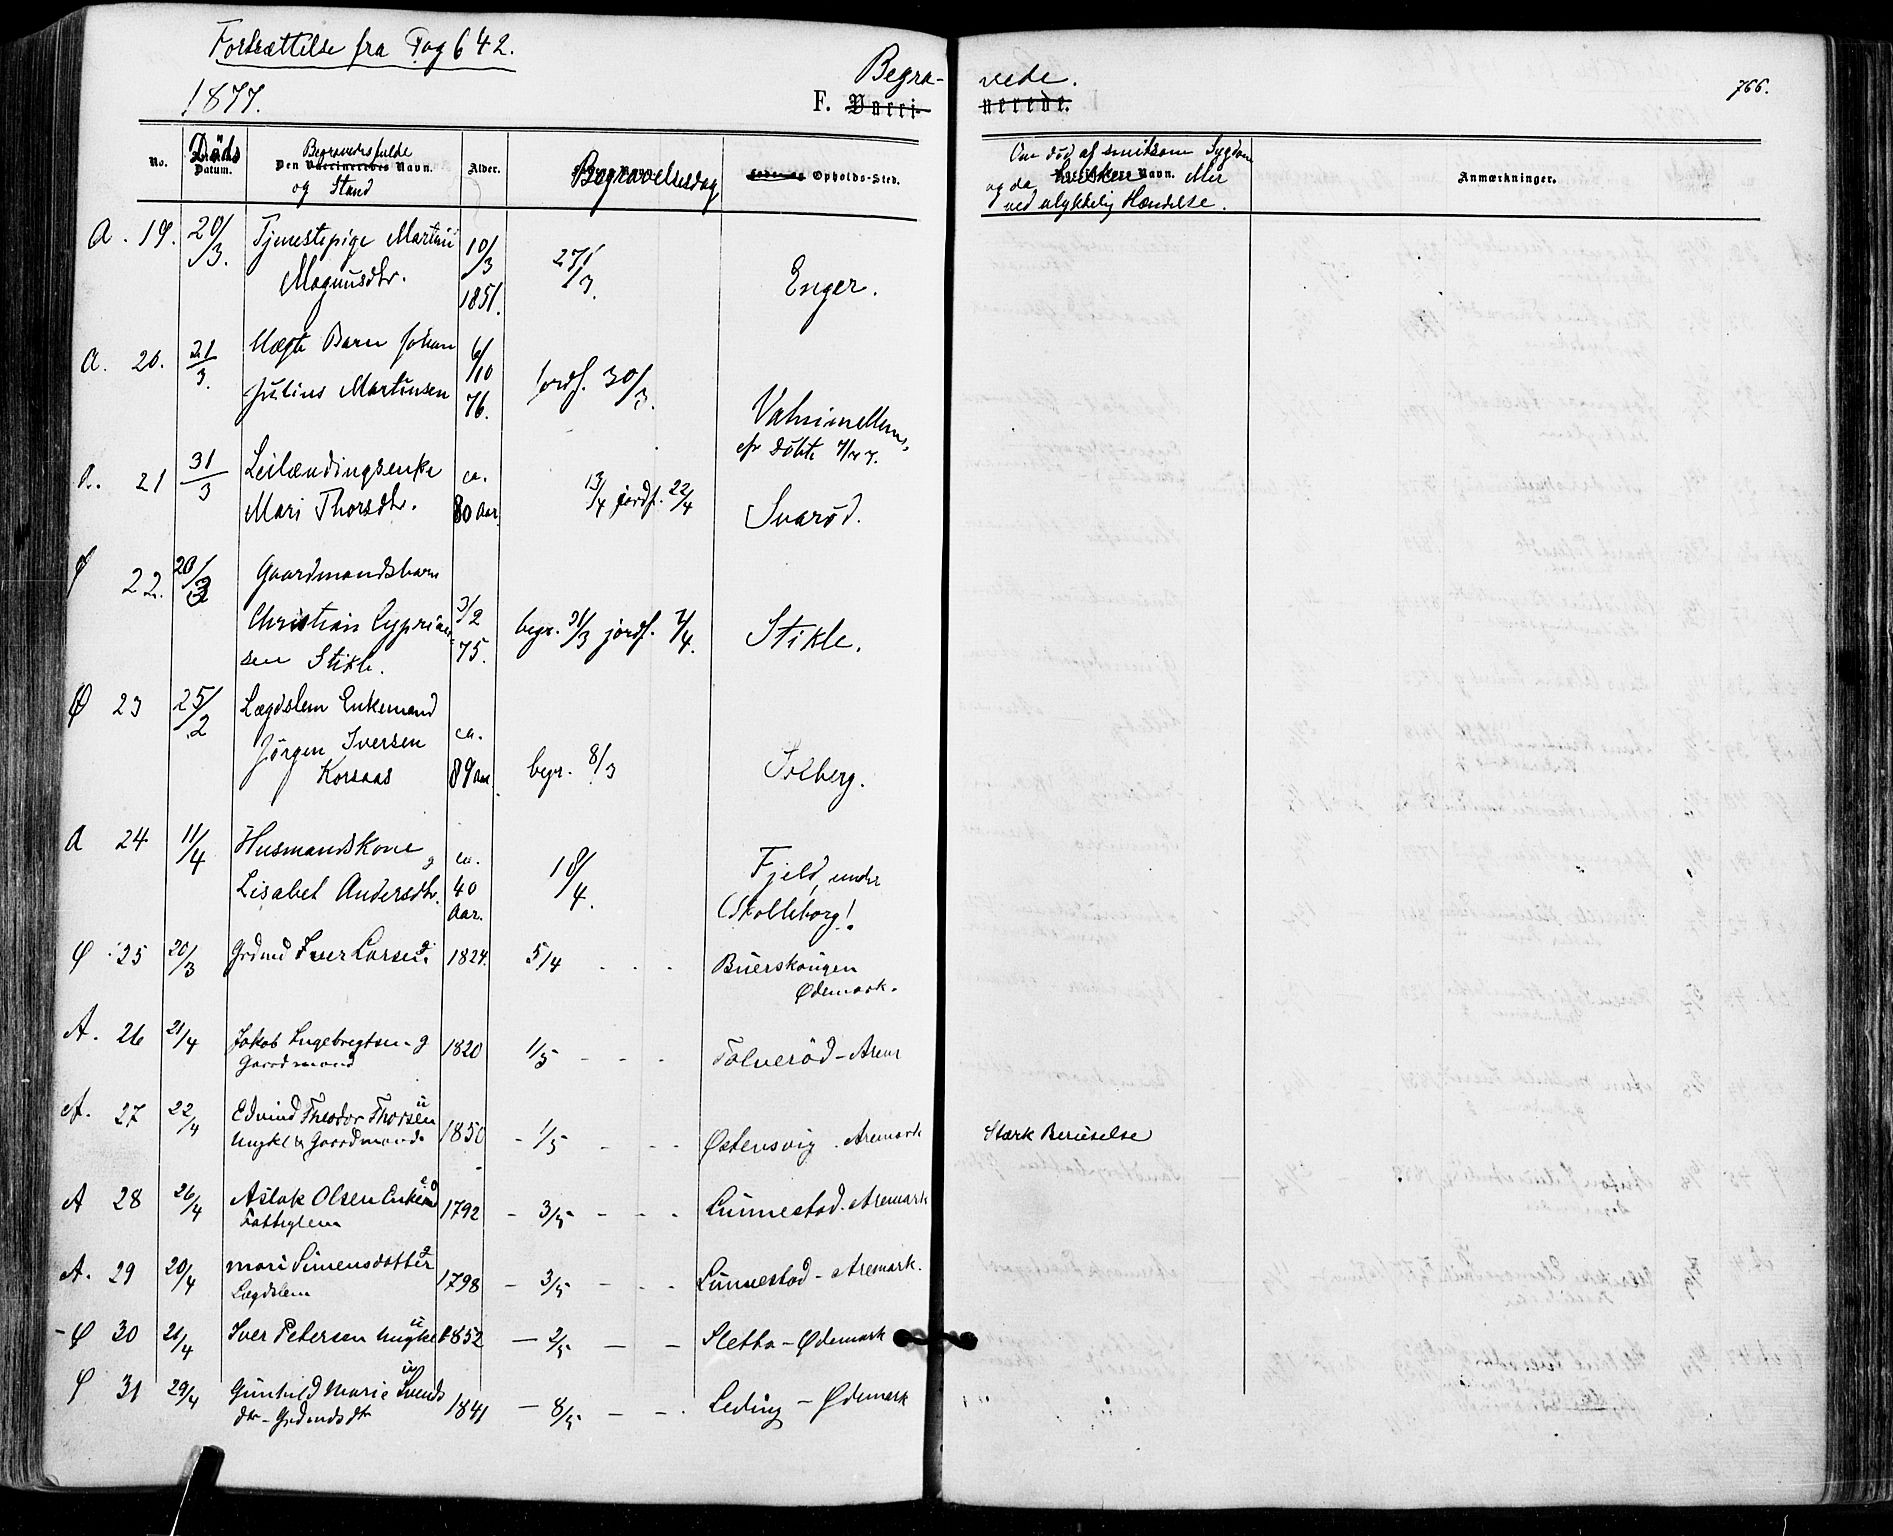 Fortsættelse fra Pag 642.
1877.
Begra- vede.
F. Vacci- nerede.
766.
No. Døds Datum. Den Begravedes fulde Vaccineredes Navn. og Stand Alder. Begravelsesdag Opholds-Sted. Om død af smitsom Sygdom og da Navn. ved ulykkelig Hændelse. Anmærkninger.
A. 19. 20/3. Tjenestepige Martini 10/3 27/3. Enger.
Magnusdtr. 1851.
A. 20. 21/3. Uægte Barn Johan 6/10 jordf. 30/3.
Julius Martinsen 76.
21 31/3 Leilændingsenke ca. 13/4 jordf. 22/4 Svarød.
Mari Thorsdtr. 80 Aar.
Ø 22. 20/3 Gaardmandsbarn
Christian Cyprian- 3/2 begr. 31/3 jordf. 2/4. Stikle.
sen Stikle. 75.
Ø 23 25/2 Lægdslem Enkemand ca.
Jørgen Iversen begr. 8/3 Solberg.
Korsaas 89 Aar
A 24 11/4 Husmandskone g ca. 18/4. Fjeld, under
Lisabet Andersdtr. 40 Aar. Skolleborg!
Ø 25 20/3 Grdmd Iver Larsen g 1824. 5/4 Buerskougen
Ødemark.
A. 26 21/4 Jakob Ingebregtsen g 1820 1/5 - - - Tolverød - Arem
Gaardmand
A. 27 22/4 Edvind Theodor Thorsen u 1850 - 1/5 - - - Østensvig. Aremark Stærk Beruselse
Ungkl & Gaardmands
A 28 26/4 Aslak Olsen Enkemd 1792 - 3/5 - - - Lunnestad. Aremark
Fattiglem
A. 29 20/4 Mari Simensdatter 1798 - 3/5 - - - Lunnestad - Aremark.
Lægdslem
- Ø 30 21/4 Iver Petersen Ungkl u 1852 - 2/5 - - Sletta - Ødemark
Ø 31 29/4 Gunhild Marie Svends u 1841 - 8/5 - - Leding - Ødemark
dtr - Grdmdsdtr